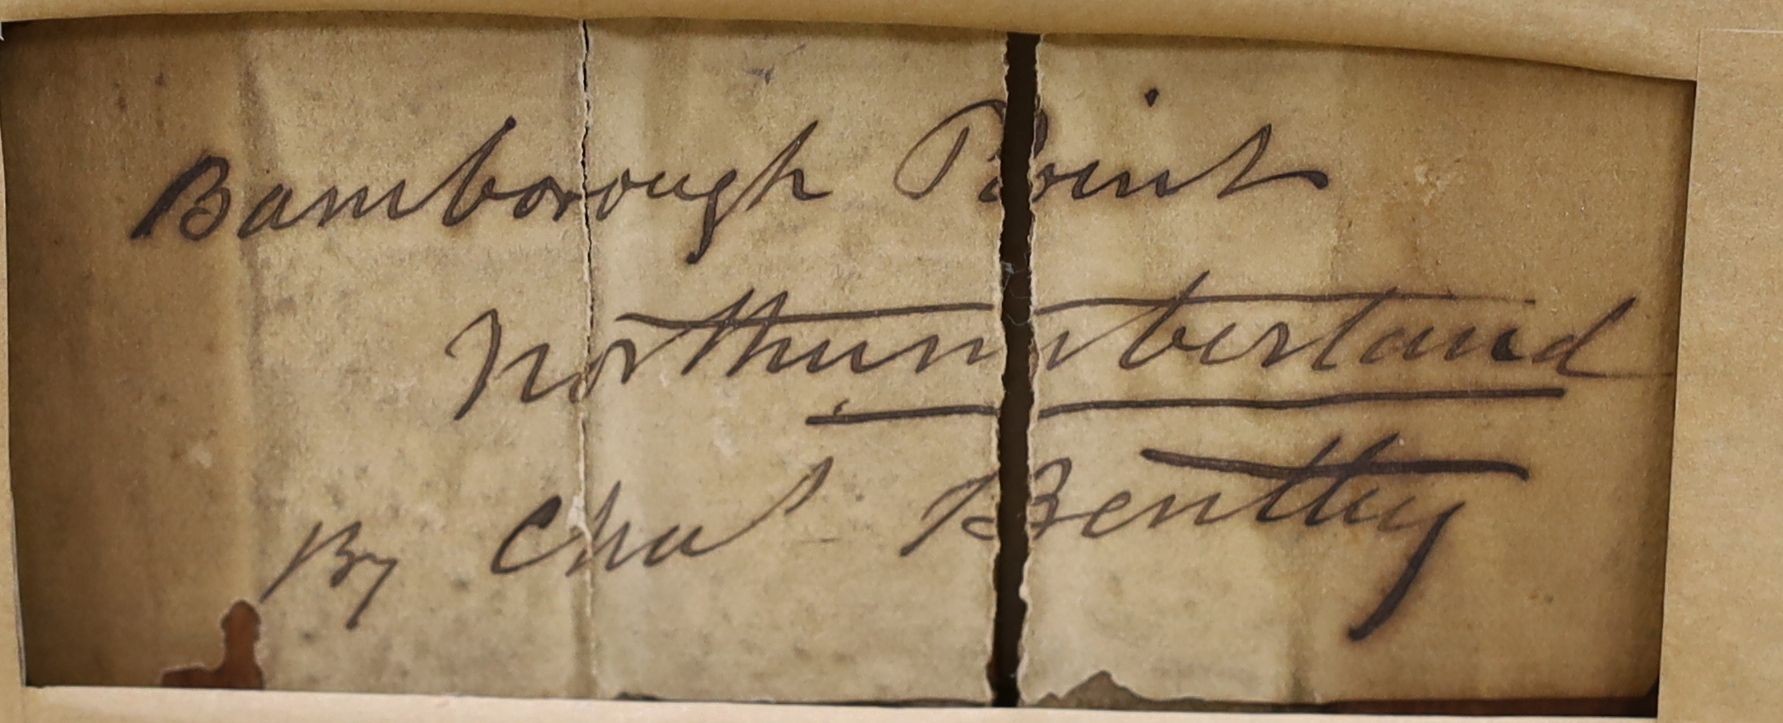 Bamborough Point
Northumberland
By Chas Bentley